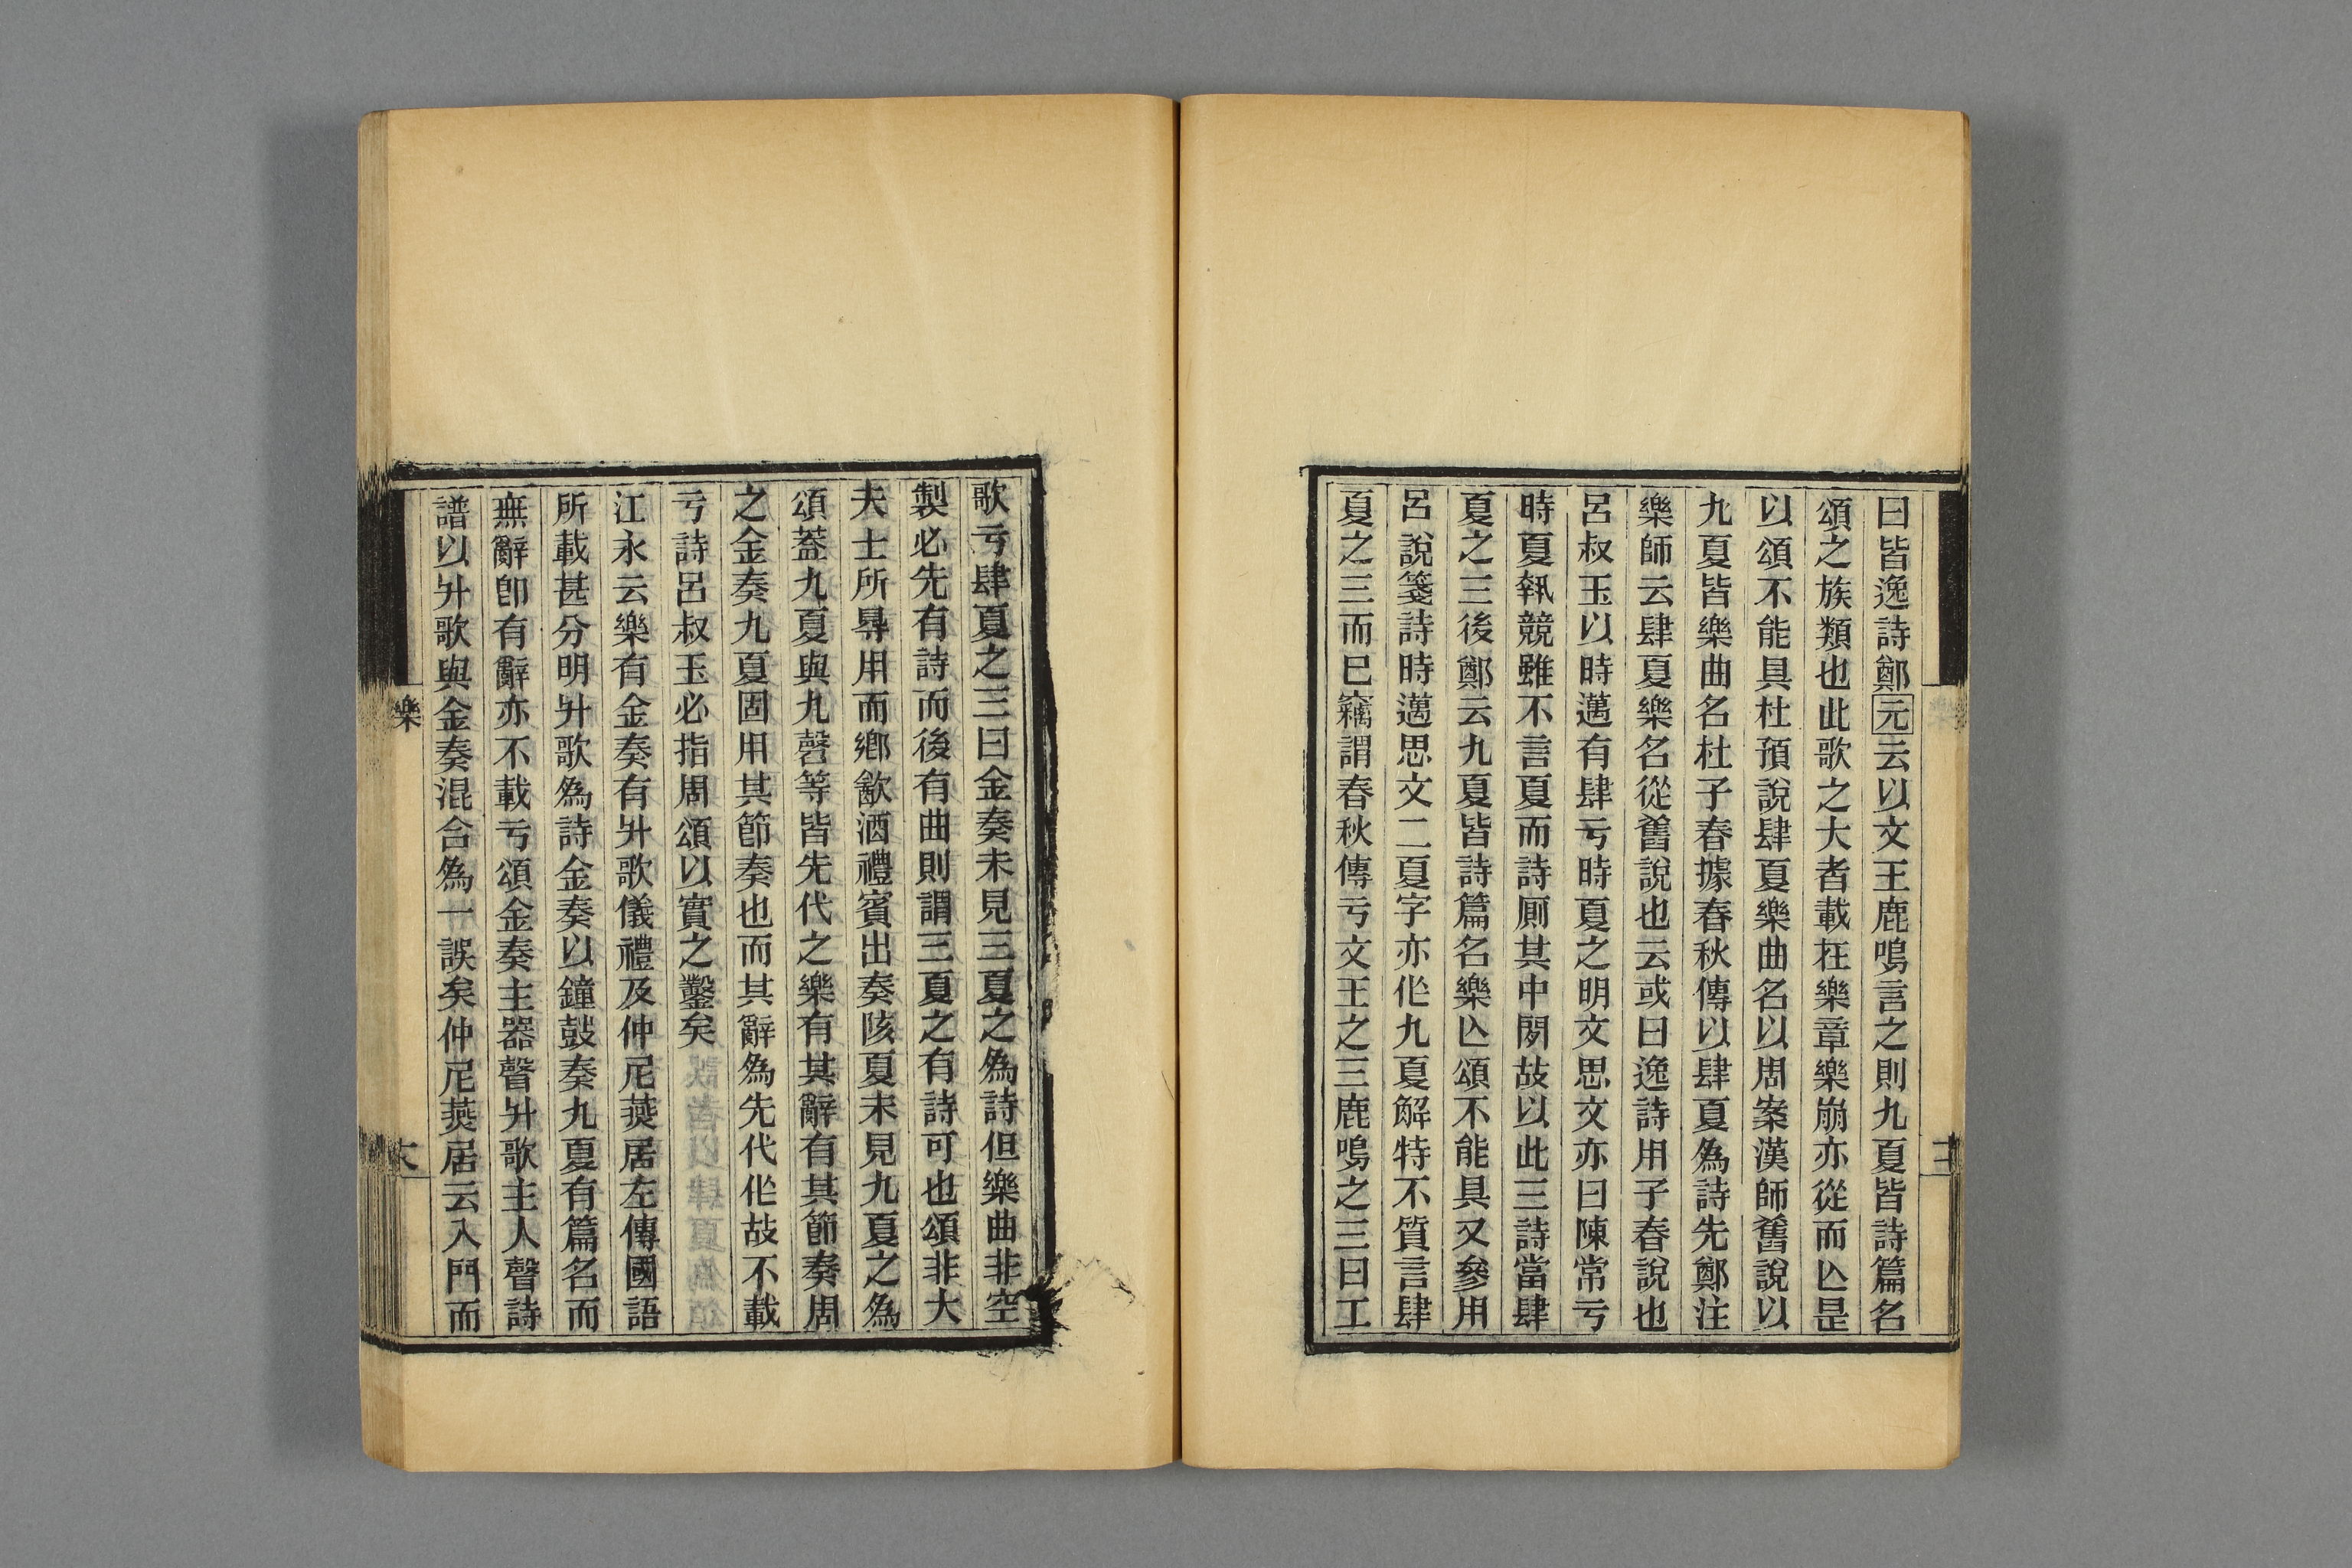 曰皆逸詩鄭元云以文王鹿鳴言之則九夏皆詩篇名
頌之族類也此歌之大者載在樂章樂崩亦從而亾是
以頌不能具杜預說肆夏樂曲名以周案漢師舊說以
九夏皆樂曲名杜子春據春秋傳以肆夏為詩先鄭注
樂師云肆夏樂名從舊說也云或曰逸詩用子春說也
呂叔玉以時邁有肆亏時夏之明文思文亦曰陳常亏
時夏執競雖不言夏而詩厠其中閒故以此三詩當肆
夏之三後鄭云九夏皆詩篇名樂亾頌不能具又參用
呂說箋詩時邁思文二夏字亦作九夏解特不質言肆
夏之三而已竊謂春秋傳亏文王之三鹿鳴之三曰工
歌亏肆夏之三曰金奏未見三夏之為詩但樂曲非空
製必先有詩而後有曲則謂三夏之有詩可也頌非大
夫士所㝵用而鄉㱃酒禮賓出奏陔夏未見九夏之為
頌蓋九夏與九磬等皆先代之樂有其辭有其節奏周
之金奏九夏固用其節奏也而其辭為先代作故不載
亏詩呂叔玉必指周頌以實之鑿矣
江永云樂有金奏有升歌儀禮及仲尼燕居左傳國語
所載甚分明升歌為詩金奏以鐘鼓奏九夏有篇名而
無辭卽有辭亦不載亏頌金奏主器聲升歌主人聲詩
譜以升歌與金奏混合為一誤矣仲尼燕居云入門而
樂